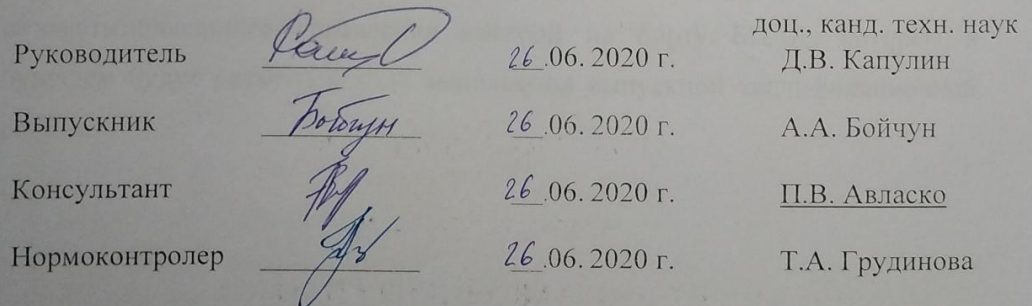 доц., канд. техн. наук
Руководитель 26.06.2020 г. Д.В. Капулин
Выпускник 26.06.2020 г. А.А. Бойчун
Консультант 26.06.2020 г. П.В. Авласко
Нормоконтролер 26.06.2020 г. Т.А. Грудинова